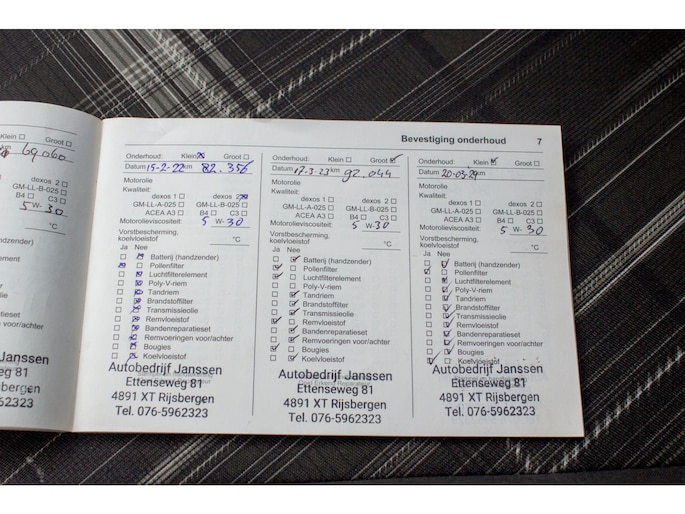 Klein Groot
km 69060
dexos 2
GM-LL-B-025
B4 C3
5 W- 30
°C
andzender)
element
olie
of
set
n voor/achter
Janssen
eg 81
ijsbergen
62323
Bevestiging onderhoud 7
Onderhoud: Klein Groot
Datum 15-2-22 km 82.356
Motorolie
Kwaliteit:
dexos 1 dexos 2
GM-LL-A-025 GM-LL-B-025
ACEA A3 B4 C3
Motorolieviscositeit: 5 W- 30
Vorstbescherming,
koelvloeistof °C
Ja Nee
Batterij (handzender)
Pollenfilter
Luchtfilterelement
Poly-V-riem
Tandriem
Brandstoffilter
Transmissieolie
Remvloeistof
Bandenreparatieset
Remvoeringen voor/achter
Bougies
Koelvloeistof
Autobedrijf Janssen
Ettenseweg 81
4891 XT Rijsbergen
Tel. 076-5962323
Onderhoud: Klein Groot
Datum 17-3-23 km 92.044
Motorolie
Kwaliteit:
dexos 1 dexos 2
GM-LL-A-025 GM-LL-B-025
ACEA A3 B4 C3
Motorolieviscositeit: 5 W- 30
Vorstbescherming,
koelvloeistof °C
Ja Nee
Batterij (handzender)
Pollenfilter
Luchtfilterelement
Poly-V-riem
Tandriem
Brandstoffilter
Transmissieolie
Remvloeistof
Bandenreparatieset
Remvoeringen voor/achter
Bougies
Koelvloeistof
Autobedrijf Janssen
Ettenseweg 81
4891 XT Rijsbergen
Tel. 076-5962323
Onderhoud: Klein Groot
Datum 20-03-24 km
Motorolie
Kwaliteit:
dexos 1 dexos 2
GM-LL-A-025 GM-LL-B-025
ACEA A3 B4 C3
Motorolieviscositeit: 5 W- 30
Vorstbescherming,
koelvloeistof °C
Ja Nee
Batterij (handzender)
Pollenfilter
Luchtfilterelement
Poly-V-riem
Tandriem
Brandstoffilter
Transmissieolie
Remvloeistof
Bandenreparatieset
Remvoeringen voor/achter
Bougies
Koelvloeistof
Autobedrijf Janssen
Ettenseweg 81
4891 XT Rijsbergen
Tel. 076-5962323